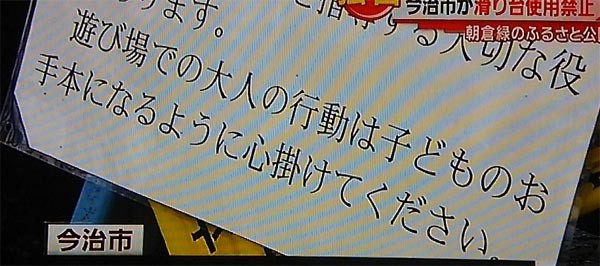 今治市が滑り台使用禁止
朝倉緑のふるさと公
ります。
する大切な役
遊び場での大人の行動は子どものお
手本になるように心掛けてください。
今治市